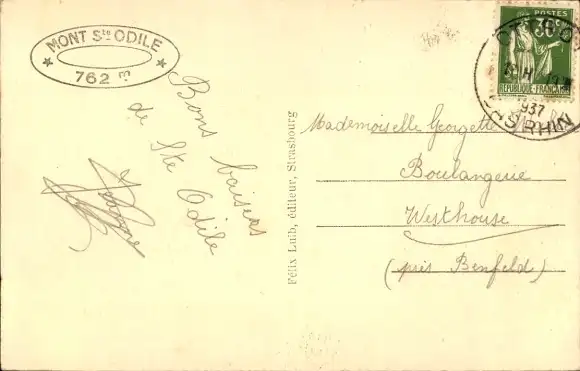 MONT Ste ODILE
762 m
Bons baisers
de Ste Odile
Félix Luib, éditeur, Strasbourg
POSTES
RÉPUBLIQUE FRANÇAISE
1937
BAS RHIN
Mademoiselle Georgette
Boulangerie
Westhouse
(près Benfeld)